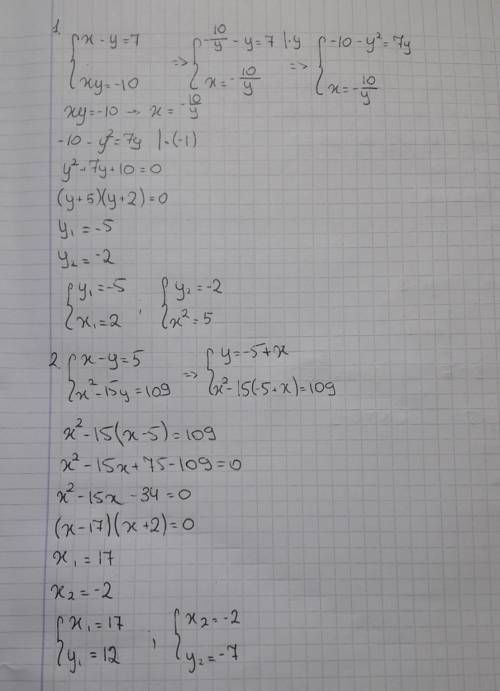 1.
{x - y = 7 => {-10/y - y = 7 |·y => {-10 - y² = 7y
{xy = -10 {x = -10/y {x = -10/y
xy = -10 → x = -10/y
-10 - y² = 7y |·(-1)
y² + 7y + 10 = 0
(y + 5)(y + 2) = 0
y₁ = -5
y₂ = -2
{y₁ = -5 ; {y₂ = -2
{x₁ = 2 {x² = 5
2. {x - y = 5 => {y = -5 + x
{x² - 15y = 109 {x² - 15(-5 + x) = 109
x² - 15(x - 5) = 109
x² - 15x + 75 - 109 = 0
x² - 15x - 34 = 0
(x - 17)(x + 2) = 0
x₁ = 17
x₂ = -2
{x₁ = 17 ; {x₂ = -2
{y₁ = 12 {y₂ = -7